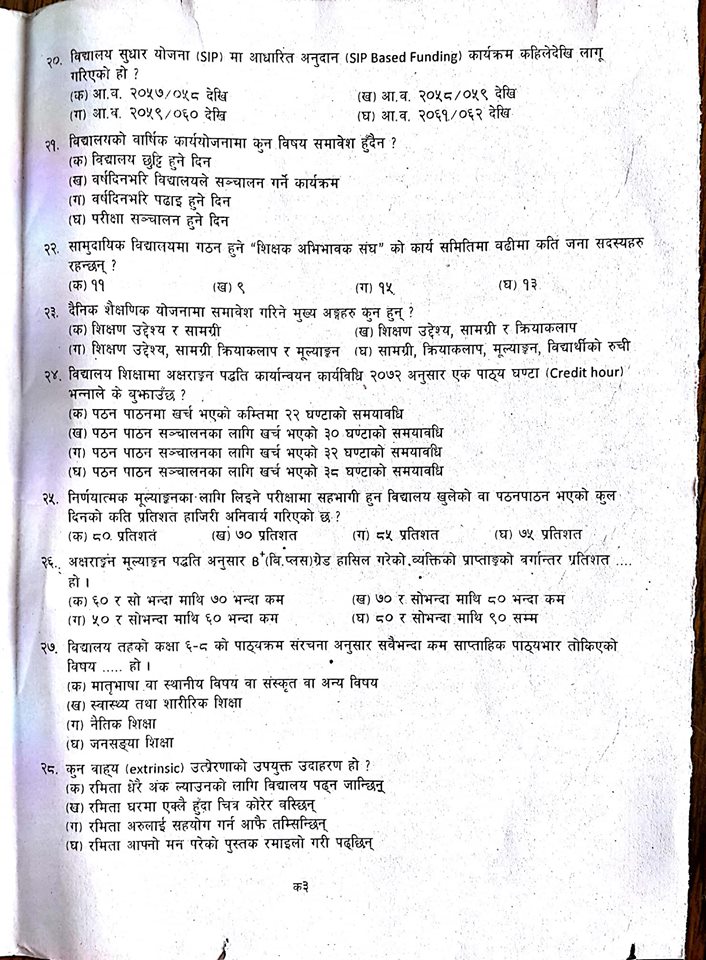 २०. विद्यालय सुधार योजना (SIP) मा आधारित अनुदान (SIP Based Funding) कार्यक्रम कहिलेदेखि लागू
गरिएको हो ?
(क) आ.व. २०५७/०५८ देखि (ख) आ.व. २०५८/०५९ देखि
(ग) आ.व. २०५९/०६० देखि (घ) आ.व. २०६१/०६२ देखि
२१. विद्यालयको वार्षिक कार्ययोजनामा कुन विषय समावेश हुँदैन ?
(क) विद्यालय छुट्टि हुने दिन
(ख) वर्षदिनभरि विद्यालयले सञ्चालन गर्ने कार्यक्रम
(ग) वर्षदिनभरि पढाइ हुने दिन
(घ) परीक्षा सञ्चालन हुने दिन
२२. सामुदायिक विद्यालयमा गठन हुने "शिक्षक अभिभावक संघ" को कार्य समितिमा वढीमा कति जना सदस्यहरु
रहन्छन् ?
(क) ११ (ख) ९ (ग) १५ (घ) १३
२३. दैनिक शैक्षणिक योजनामा समावेश गरिने मुख्य अङ्गहरु कुन हुन् ?
(क) शिक्षण उद्देश्य र सामग्री (ख) शिक्षण उद्देश्य, सामग्री र क्रियाकलाप
(ग) शिक्षण उद्देश्य, सामग्री क्रियाकलाप र मूल्याङ्कन (घ) सामग्री, क्रियाकलाप, मूल्याङ्कन, विद्यार्थीको रुची
२४. विद्यालय शिक्षामा अक्षराङ्कन पद्धति कार्यान्वयन कार्यविधि २०७२ अनुसार एक पाठ्य घण्टा (Credit hour)
भन्नाले के वुझाउँछ ?
(क) पठन पाठनमा खर्च भएको कम्तिमा २२ घण्टाको समयावधि
(ख) पठन पाठन सञ्चालनका लागि खर्च भएको ३० घण्टाको समयावधि
(ग) पठन पाठन सञ्चालनका लागि खर्च भएको ३२ घण्टाको समयावधि
(घ) पठन पाठन सञ्चालनका लागि खर्च भएको ३८ घण्टाको समयावधि
२५. निर्णयात्मक मूल्याङ्कनका लागि लिइने परीक्षामा सहभागी हुन विद्यालय खुलेको वा पठनपाठन भएको कुल
दिनको कति प्रतिशत हाजिरी अनिवार्य गरिएको छ ?
(क) ८० प्रतिशत (ख) ७० प्रतिशत (ग) ८५ प्रतिशत (घ) ७५ प्रतिशत
२६. अक्षराङ्कन मूल्याङ्कन पद्धति अनुसार B⁺(वि.प्लस)ग्रेड हासिल गरेको व्यक्तिको प्राप्ताङ्कको वर्गान्तर प्रतिशत ....
हो ।
(क) ६० र सो भन्दा माथि ७० भन्दा कम (ख) ७० र सोभन्दा माथि ८० भन्दा कम
(ग) ५० र सोभन्दा माथि ६० भन्दा कम (घ) ८० र सोभन्दा माथि ९० सम्म
२७. विद्यालय तहको कक्षा ६-८ को पाठ्यक्रम संरचना अनुसार सवैभन्दा कम साप्ताहिक पाठ्यभार तोकिएको
विषय ..... हो ।
(क) मातृभाषा वा स्थानीय विषय वा संस्कृत वा अन्य विषय
(ख) स्वास्थ्य तथा शारीरिक शिक्षा
(ग) नैतिक शिक्षा
(घ) जनसङ्या शिक्षा
२८. कुन वाह्य (extrinsic) उत्प्रेरणाको उपयुक्त उदाहरण हो ?
(क) रमिता धेरै अंक ल्याउनको लागि विद्यालय पढ्न जान्छिन्
(ख) रमिता घरमा एक्लै हुँदा चित्र कोरेर वस्छिन्
(ग) रमिता अरुलाई सहयोग गर्न आफै तम्सिन्छिन्
(घ) रमिता आफ्नो मन परेको पुस्तक रमाइलो गरी पढ्छिन्
क३